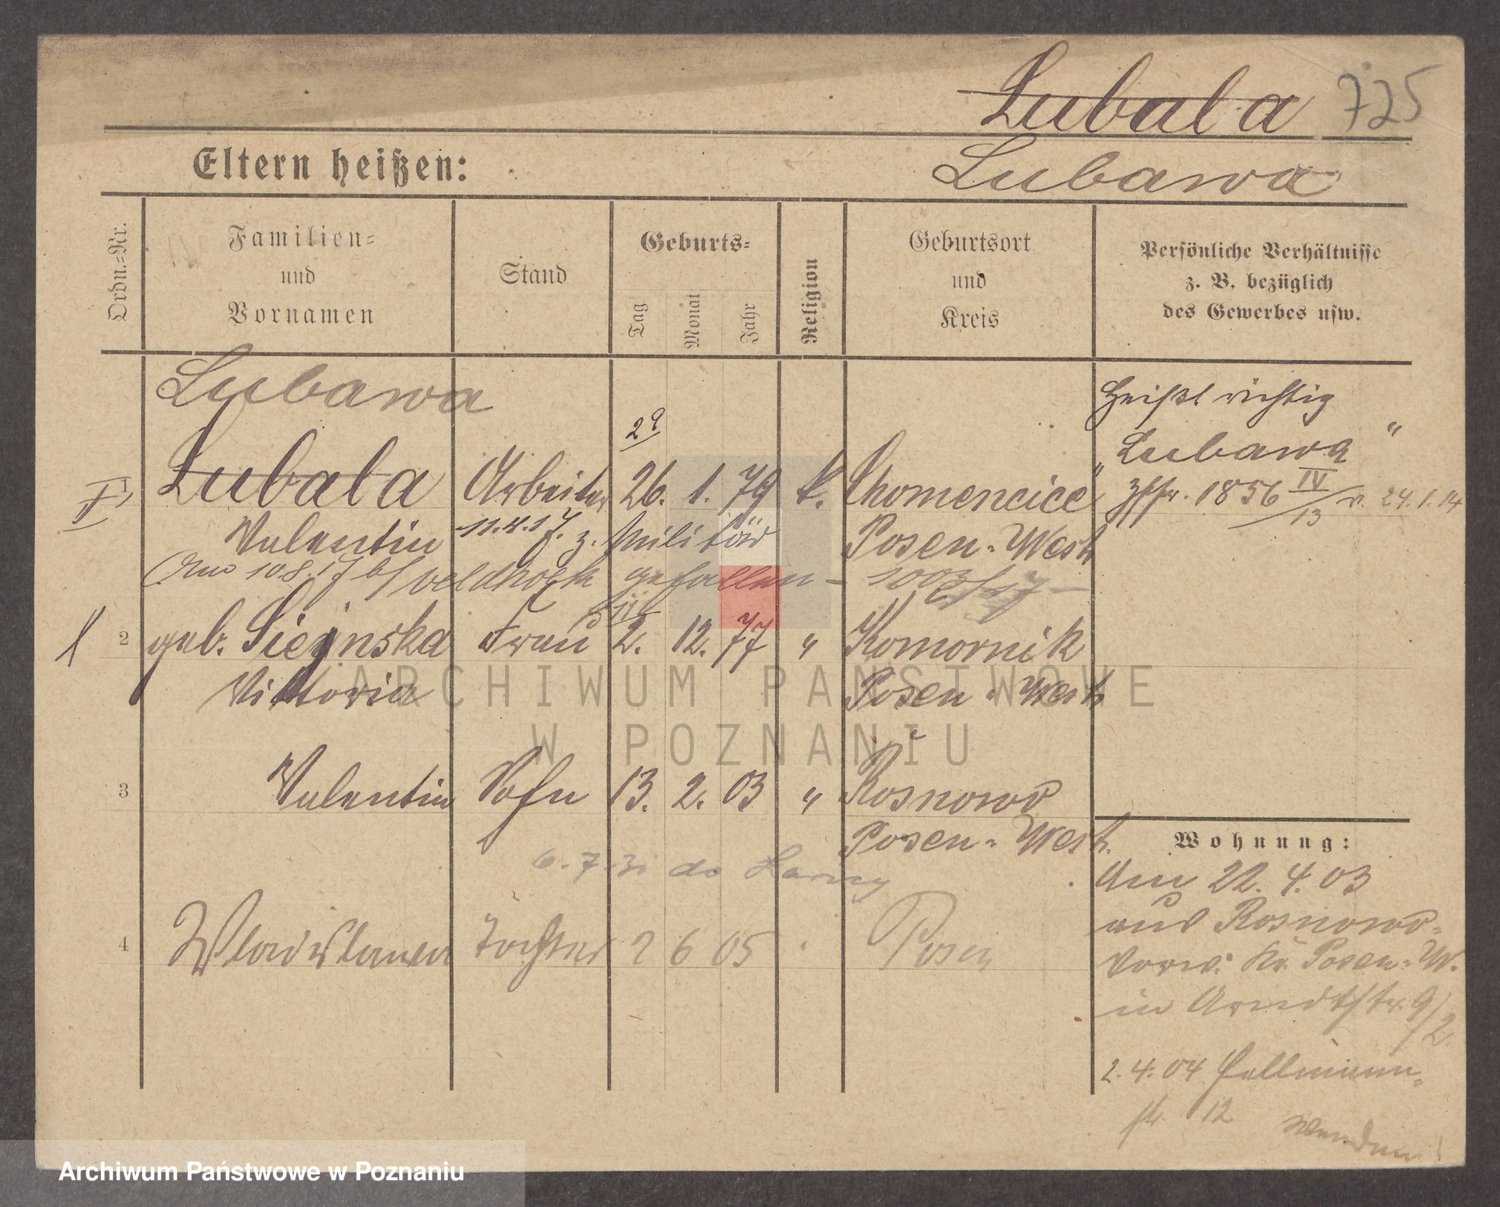 Lubala 725
Eltern heißen:
Lubawa
Ordn.-Nr.
Familien-
und
Vornamen
Stand
Geburts-
Tag
Monat
Jahr
Religion
Geburtsort
und
Kreis
Persönliche Verhältnisse
z. B. bezüglich
des Gewerbes usw.
Lubawa
heißt richtig
29
"Lubawa"
Lubala Arbeiter 26. 1. 79 k. Chomencice
1856 IV/13 v. 24.1.14
Valentin 11.4.17 z. Militär Posen-West
Am 10.8.17 gefallen
2 geb. Frau 2. 12. 77 " Komornik
Viktoria Posen-West
3 Valentin Sohn 13. 2. 03 " Rosnowo
Posen-West.
Wohnung:
6.7.
Am 22.4.03
aus Rosnowo-
4 Wladislawa Tochter 2 6 05 Posen
Kr. Posen-W.
in Arndtstr. 9/2
2.4.04
str 12
wenden!
ARCHIWUM PAŃSTWOWE
W POZNANIU
Archiwum Państwowe w Poznaniu